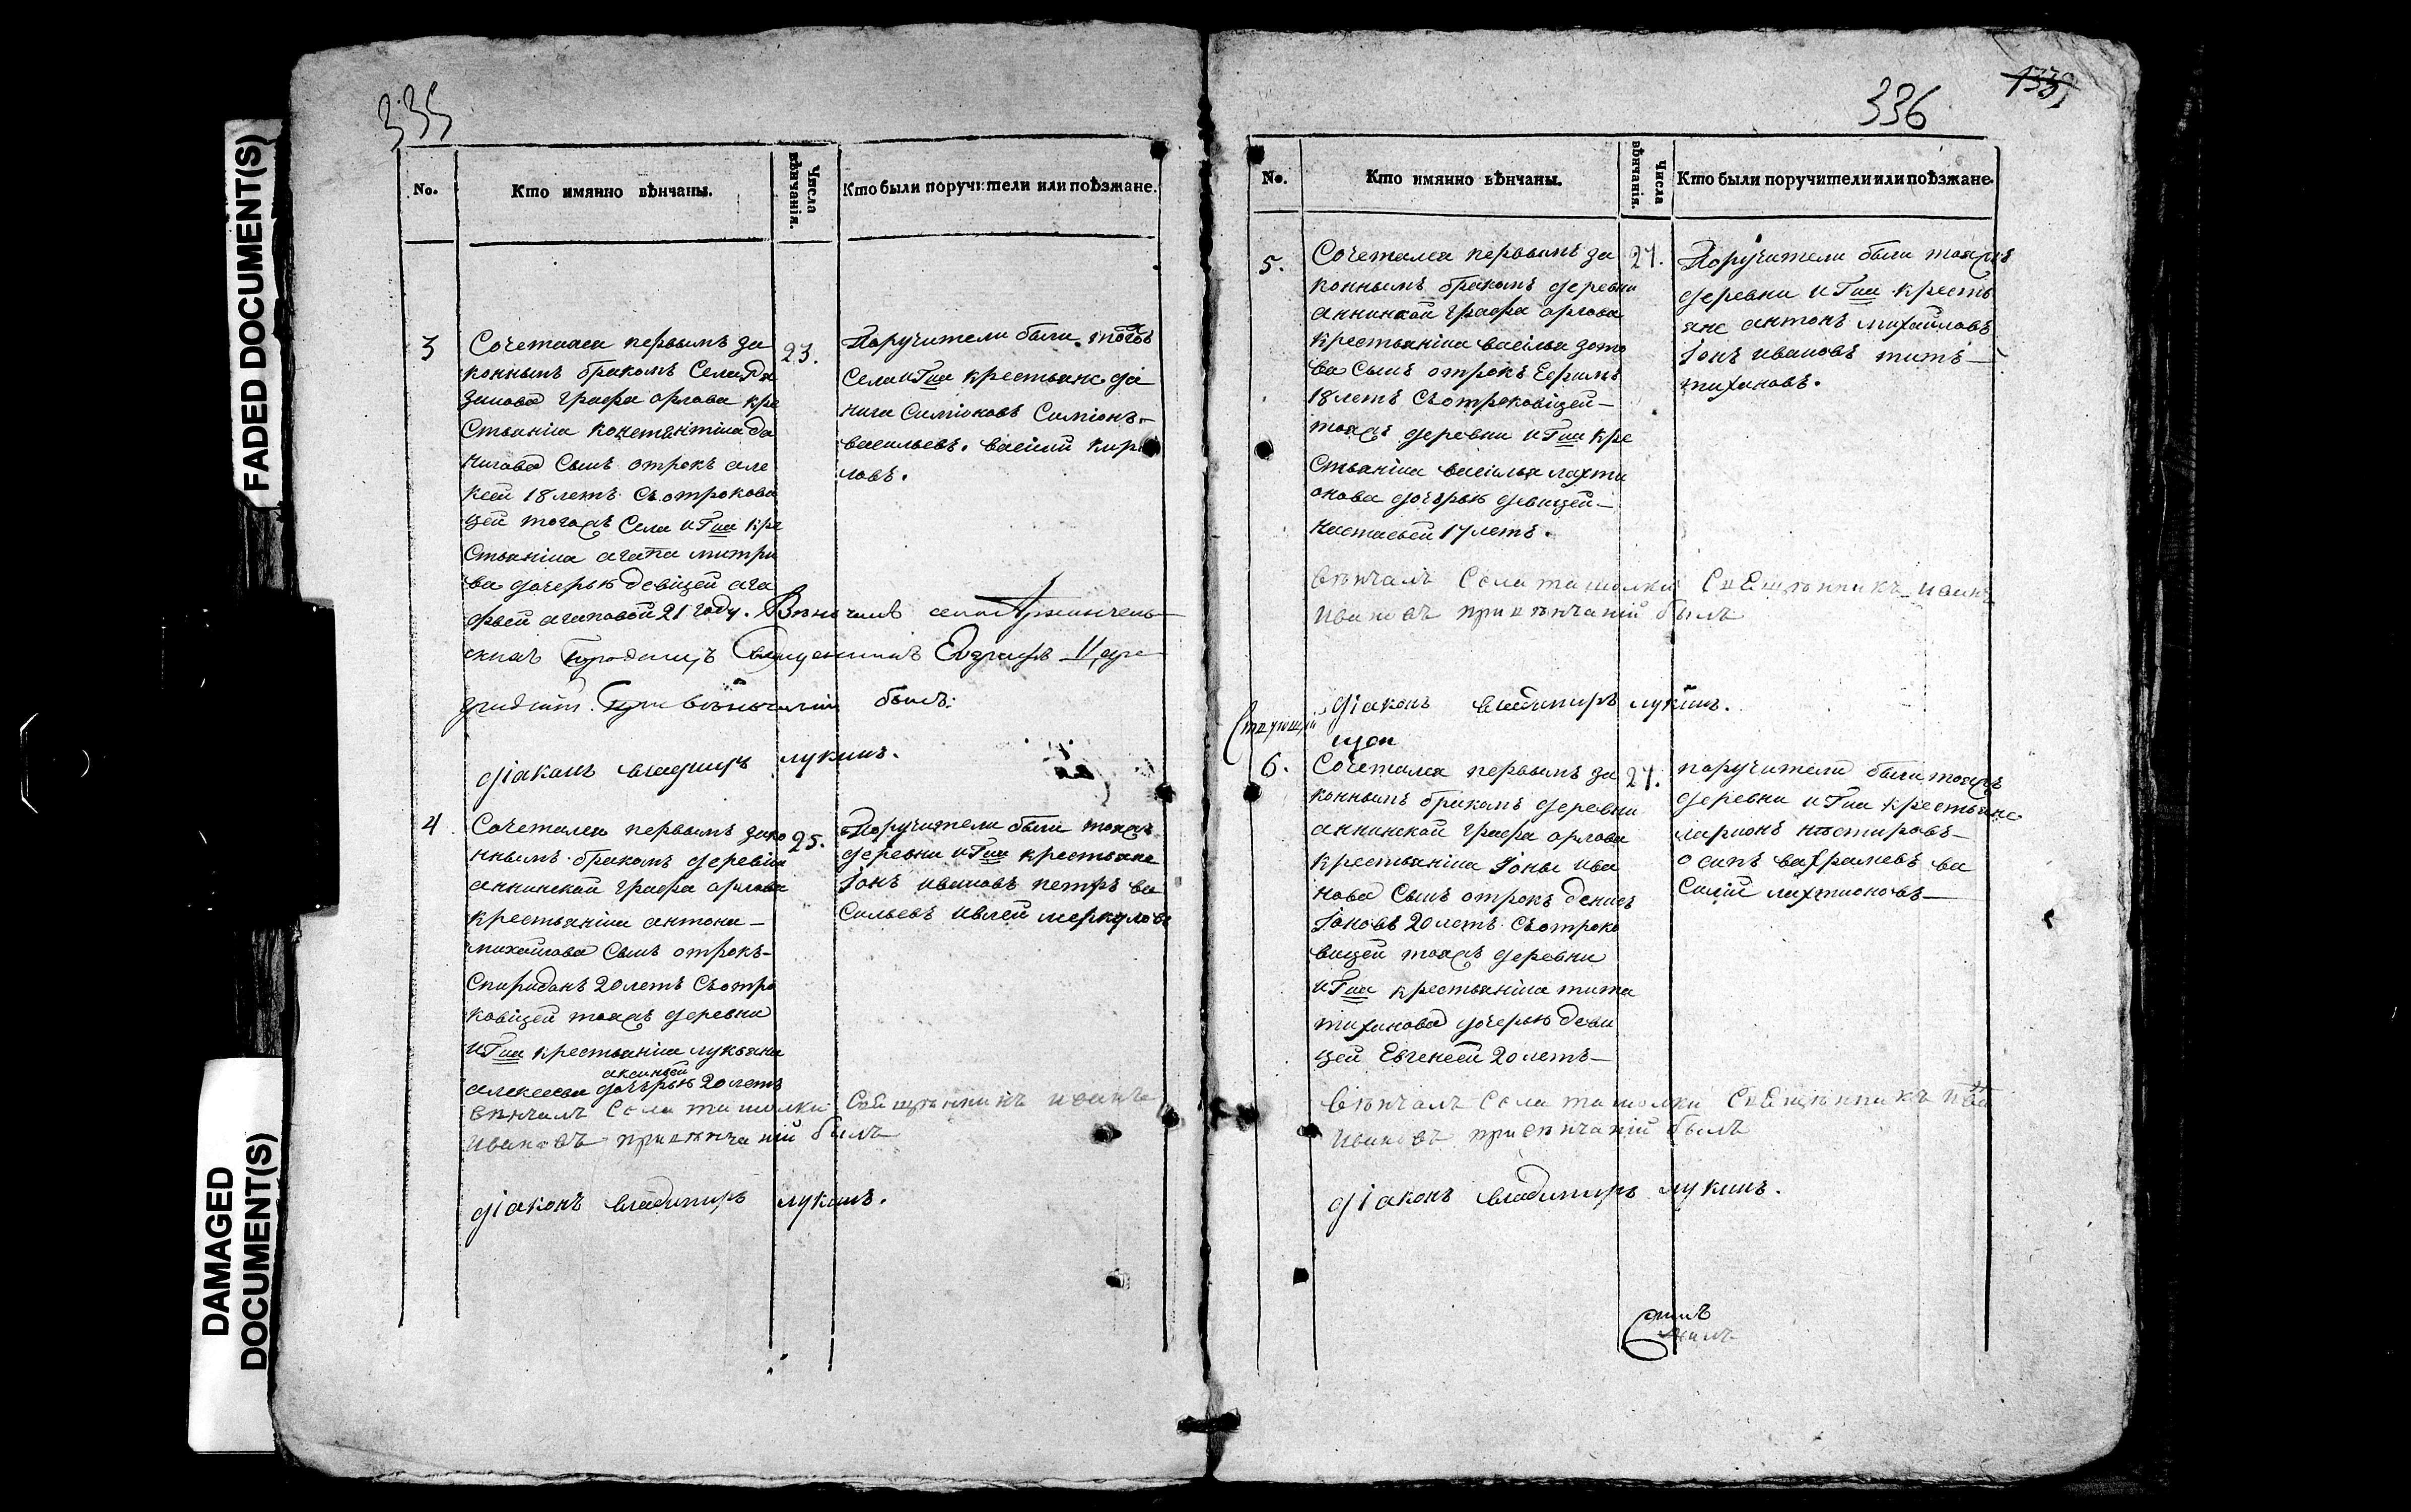 FADED DOCUMENT(S)
DAMAGED
DOCUMENT(S)
335
No.
Кто имянно вѣнчаны.
Числа вѣнчанія.
Кто были поручители или поѣзжане.
3
Сочетался первымъ за
коннымъ бракомъ Села
графа орлова кре
стьянина константина да
нилова Сынъ отрокъ але
ксей 18 летъ съ отрокови
цей тогожъ Села и Гна кре
стьянина агапа митри
ва дочерью девицей ага
фьей агаповой 21 году. Венчалъ села
священникъ
При венчаніи былъ:
діаконъ владимиръ лукинъ.
23.
Поручители были тогожъ
села и Гна крестьяне да
нила Симіоновъ Симіонъ
васильевъ. василй кири
ловъ.
4
Сочетался первымъ зако
ннымъ бракомъ деревни
аннинской графа орлова
крестьянина антона
михайлова Сынъ отрокъ
Спиридонъ 20 летъ Съ отро
ковицей тояжъ деревни
и Гна крестьянина лукьяна
аксиньей
алексеева дочерью 20 летъ
венчалъ Села ташолки Священникъ иванъ
Ивановъ при венчаній былъ
діаконъ владимиръ лукинъ.
25.
Поручители были тояжъ
деревни и Гна крестьяне
Іонъ ивановъ петръ ва
Сильевъ ивлей меркуловъ
336
No.
Кто имянно вѣнчаны.
Числа вѣнчанія.
Кто были поручители или поѣзжане.
5.
Сочетался первымъ за
коннымъ бракомъ деревни
аннинской графа орлова
крестьянина василья зото
ва Сынъ отрокъ Ефимъ
18 летъ Съ отроковицей
тояжъ деревни и Гна кре
стьянина василья лахти
онова дочерью девицей
настасьей 17 летъ.
венчалъ Села ташолки Священникъ иванъ
Ивановъ при венчаній былъ
діаконъ владимиръ лукинъ.
27.
Поручители были тояжъ
деревни и Гна кресть
яне антонъ михайловъ
Іонъ ивановъ титъ
тихановъ.
6.
Сочетался первымъ за
коннымъ бракомъ деревни
аннинской графа орлова
крестьянина Іоны ива
нова Сынъ отрокъ денисъ
Іоновъ 20 летъ Съ отроко
вицей тояжъ деревни
и Гна крестьянина тита
тиханова дочерью деви
цей Евгенеей 20 летъ
венчалъ Села ташолки Священникъ
Ивановъ при венчаній былъ
діаконъ владимиръ лукинъ.
27.
поручители были тояжъ
деревни и Гна крестьяне
ларионъ нестировъ
осипъ вахрамевъ ва
Силій лахтионовъ